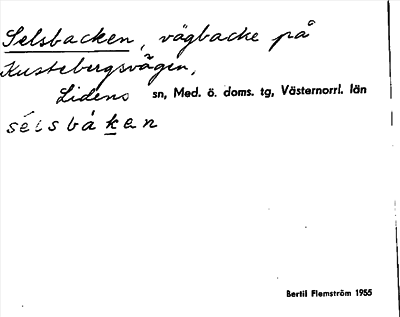 Selsbacken, vägbacke på
Kustebergsvägen,
Lidens sn, Med. ö. doms. tg, Västernorrl. län
sélsbàken
Bertil Flemström 1955